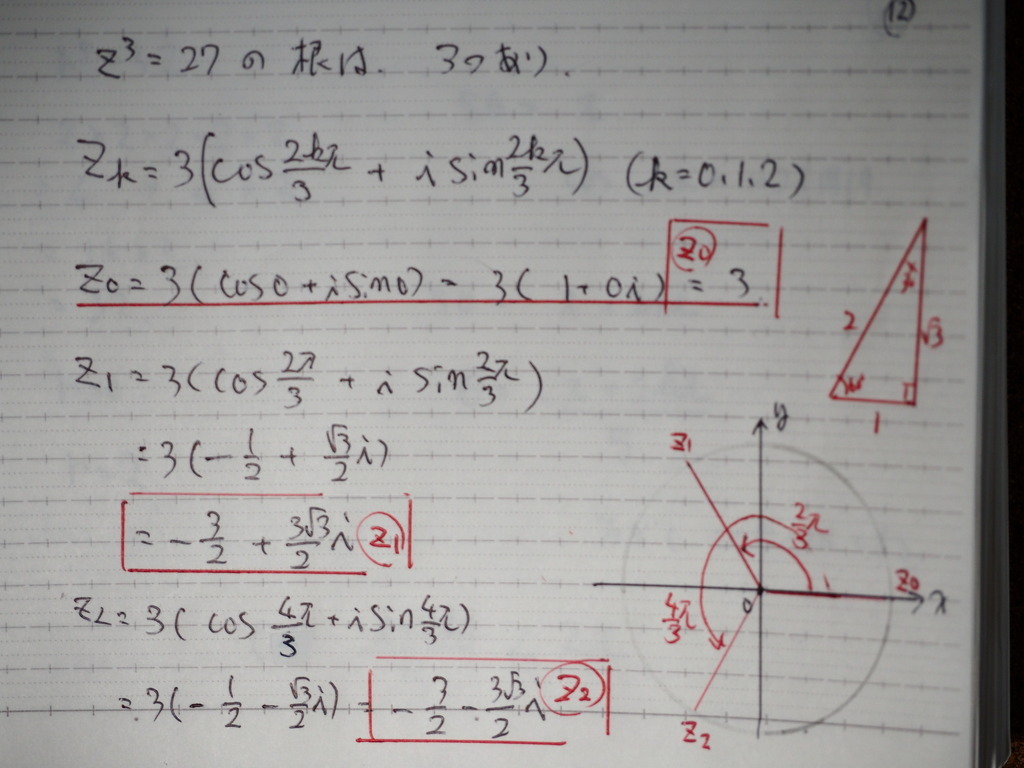 (12)
z³ = 27 の 根は. 3つあり.
Zk = 3(cos 2kπ/3 + i sin 2kπ/3) (k=0.1.2)
Z0 = 3(cos0 + i sin0) = 3(1+0i) = 3. Z0
Z1 = 3(cos 2π/3 + i sin 2π/3)
= 3(-1/2 + √3/2 i)
= -3/2 + 3√3/2 i Z1
Z2 = 3(cos 4π/3 + i sin 4π/3)
= 3(-1/2 - √3/2 i) = -3/2 - 3√3/2 i Z2
2
√3
1
y
Z1
2/3π
Z0
0
x
4π/3
Z2